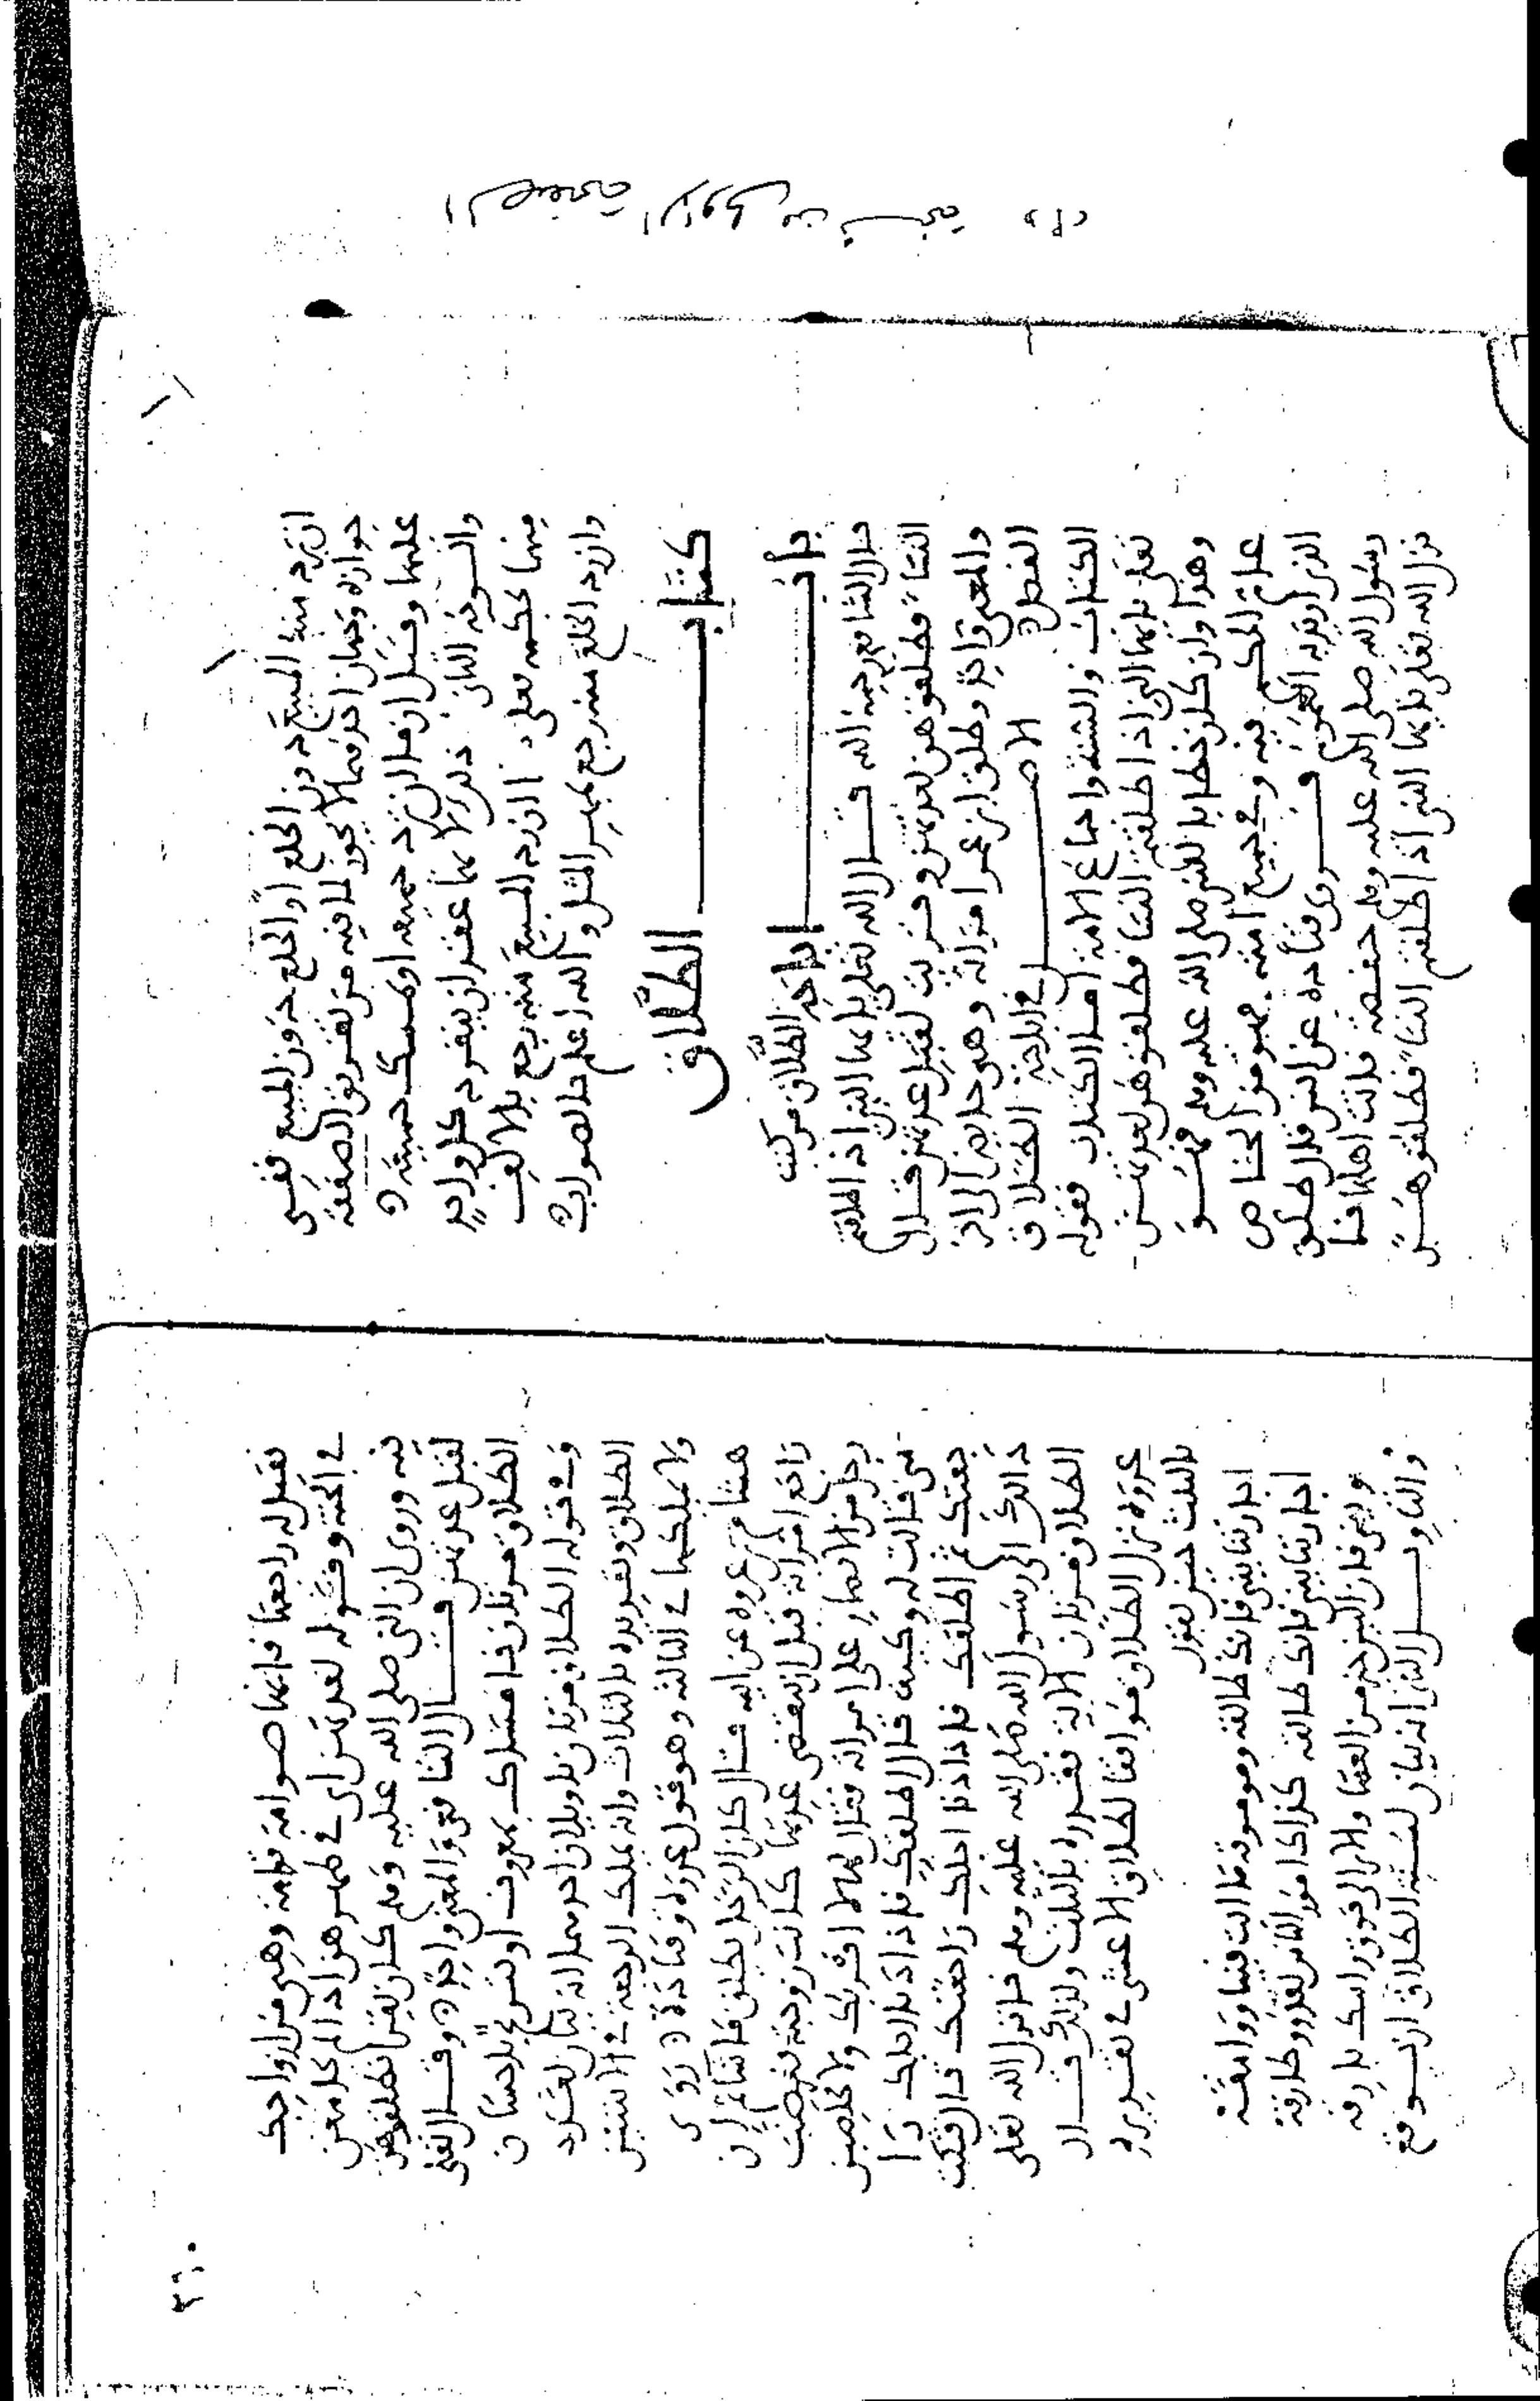 الصفحة الأولى من نسخة
ان ترد منه المبيع دون الخلع او الخلع دون المبيع ففي
جوازه وجهان احدهما لا يجوز لما فيه من تفريق الصفقة
عليها وقيل ان مالان ترد جميعه او يمسك جميعه
والسوفه الثاني ذلك لها عقدان ينفرد كل واحد
منهما بحكمه فعلى ان ترد المبيع منه رجع بالالف
وان رد الخلع منه رجع بمهر المثل والله اعلم بالصواب
كتاب الطلاق
باب اباحة الطلاق من كتب
قال الشافعي رحمه الله قال الله تعالى يا ايها النبي اذا طلقتم
النساء فطلقوهن لعدتهن وقرئت لقبل عدتهن قال
والمعنى واحد وطلق ابن عمر امراته وهي حايض الى اخر
الفصل الاصل في اباحة الطلاق
الكتاب والسنة واجماع الامة اما الكتاب فقوله
تعالى يا ايها النبي اذا طلقتم النساء فطلقوهن لعدتهن
وهذا وان كان خطابا للنبي صلى الله عليه وسلم فهو
عام الحكم فيه وفي جميع امته فهو من الخاص
الذي اريد به العموم فروى قتادة عن انس قال طلق
رسول الله صلى الله عليه وسلم حفصة فاتت اهلها فا
نزل الله تعالى يا ايها النبي اذا طلقتم النساء فطلقوهن
٢٦٠
فقيل له راجعها فانها صوامة قوامة وهي من ازواجك
في الجنة وقوله لعدتهن اى في طهرهن اذا لم يجامعن
فيه وروى ان النبي صلى الله عليه وسلم كان يقرا فطلقوهن
لقبل عدتهن قال الشافعي والمعنى واحد وقال تعالى
الطلاق مرتان فامساك بمعروف او تسريح باحسان
وفي قوله الطلاق مرتان تاويلان احدهما انه بيان لعدد
الطلاق وتقريره بالثلاث وانه يملك الرجعة في الاثنتين
ولا يملكها في الثالثة وهو قول عروة وقتادة روى
هشام بن عروة عن ابيه قال كان الرجل يطلق ما شاء ثم ان
راجع امراته قبل ان تنقضي عدتها كانت زوجته فغضب
رجل من الانصار على امراته فقال لها لا اقربك ولا تخلصين
مني قالت له وكيف قال اطلقك فاذا دنا اجلك را
جعتك ثم اطلقك فاذا دنا اجلك راجعتك قال فشكت
ذلك الى رسول الله صلى الله عليه وسلم فانزل الله تعالى
الطلاق مرتان الاية فقدره بالثلث ولذلك قال
عروة نزل الطلاق موافقا لطلاق الاعشى في تقديره
بالثلث حين يقول
اجارتنا بيني فانك طالقه وموموقة ما انت فينا ووامقه
اجارتنا بيني فانك طالقه كذاك امور الناس تغدو وطارقه
وبيني فان البين خير من العصا والا الى فوق راسك بارقه
والتاويل الثاني انه بيان لسنة الطلاق ان يوقع